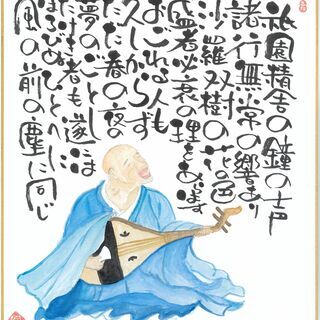 祇園精舎の鐘の声
諸行無常の響あり
沙羅双樹の花の色
盛者必衰の理をあらはす
おごれる人も
久しからず
ただ春の夜の
夢のごとし
たけき者も遂には
ほろびぬひとへに
風の前の塵に同じ